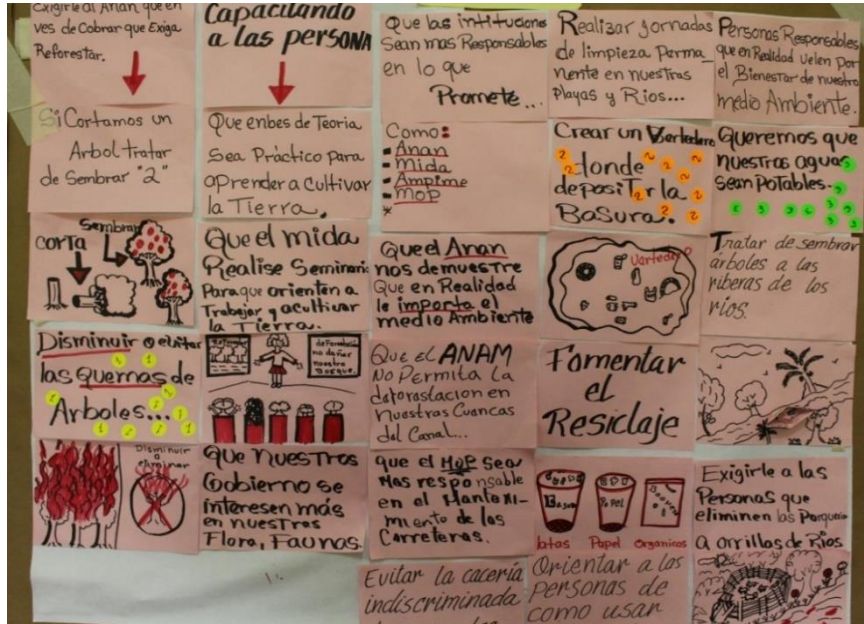 Exigirle al Anan que en
ves de Cobrar que Exiga
Reforestar.
Si Cortamos un
Arbol tratar
de Sembrar "2"
CORTA
Sembrar
Disminuir o evitar
las quemas de
Arboles...
1 1 1 1 1 1 1 1 1
Disminuir
o
eliminar
Capacitando
a las persona
Que enbes de Teoria
Sea Práctico para
aprender a cultivar
la Tierra.
Que el mida
Realise Seminario
Para que orienten a
Trabajar y a cultivar
la Tierra.
deforestar
no dañar
nuestro
Bosque.
que nuestros
Gobierno se
interesen más
en nuestras
Flora, Faunas.
Que las intituciones
Sean mas Responsables
en lo que
Promete...
Como:
- Anan
- Mida
- Ampime
- MOP
*
Que el Anan
nos demuestre
Que en Realidad
le importa el
medio Ambiente
Que el ANAM
No Permita la
deforestacion en
nuestras Cuencas
del Canal...
que el MOP sea
Mas responsable
en el Manteni-
miento de las
Carreteras.
Evitar la cacería
indiscriminada
Realizar Jornadas
de limpieza Perma-
nente en nuestras
Playas y Rios...
Crear un Vertedero
donde
depositar la
Basura.
2 2 2 2 2 2 2 2 2
Vertedero
Fomentar
el
Resiclaje
Basura
Papel
latas Papel Organicos
Orientar a las
Personas de
como usar
Personas Responsables
que en Realidad velen por
el Bienestar de nuestro
medio Ambiente.
Queremos que
nuestras aguas
sean Potables.
3 3 3 3 3 3 3 3 3
Tratar de sembrar
árboles a las
riberas de los
rios.
Exigirle a las
Personas que
eliminen las Porqueria
a orrillos de Rios